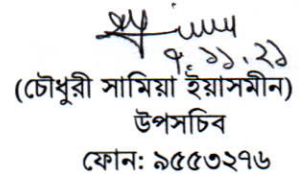 ৭.১১.২১
(চৌধুরী সামিয়া ইয়াসমীন)
উপসচিব
ফোন: ৯৫৫৩২৭৬